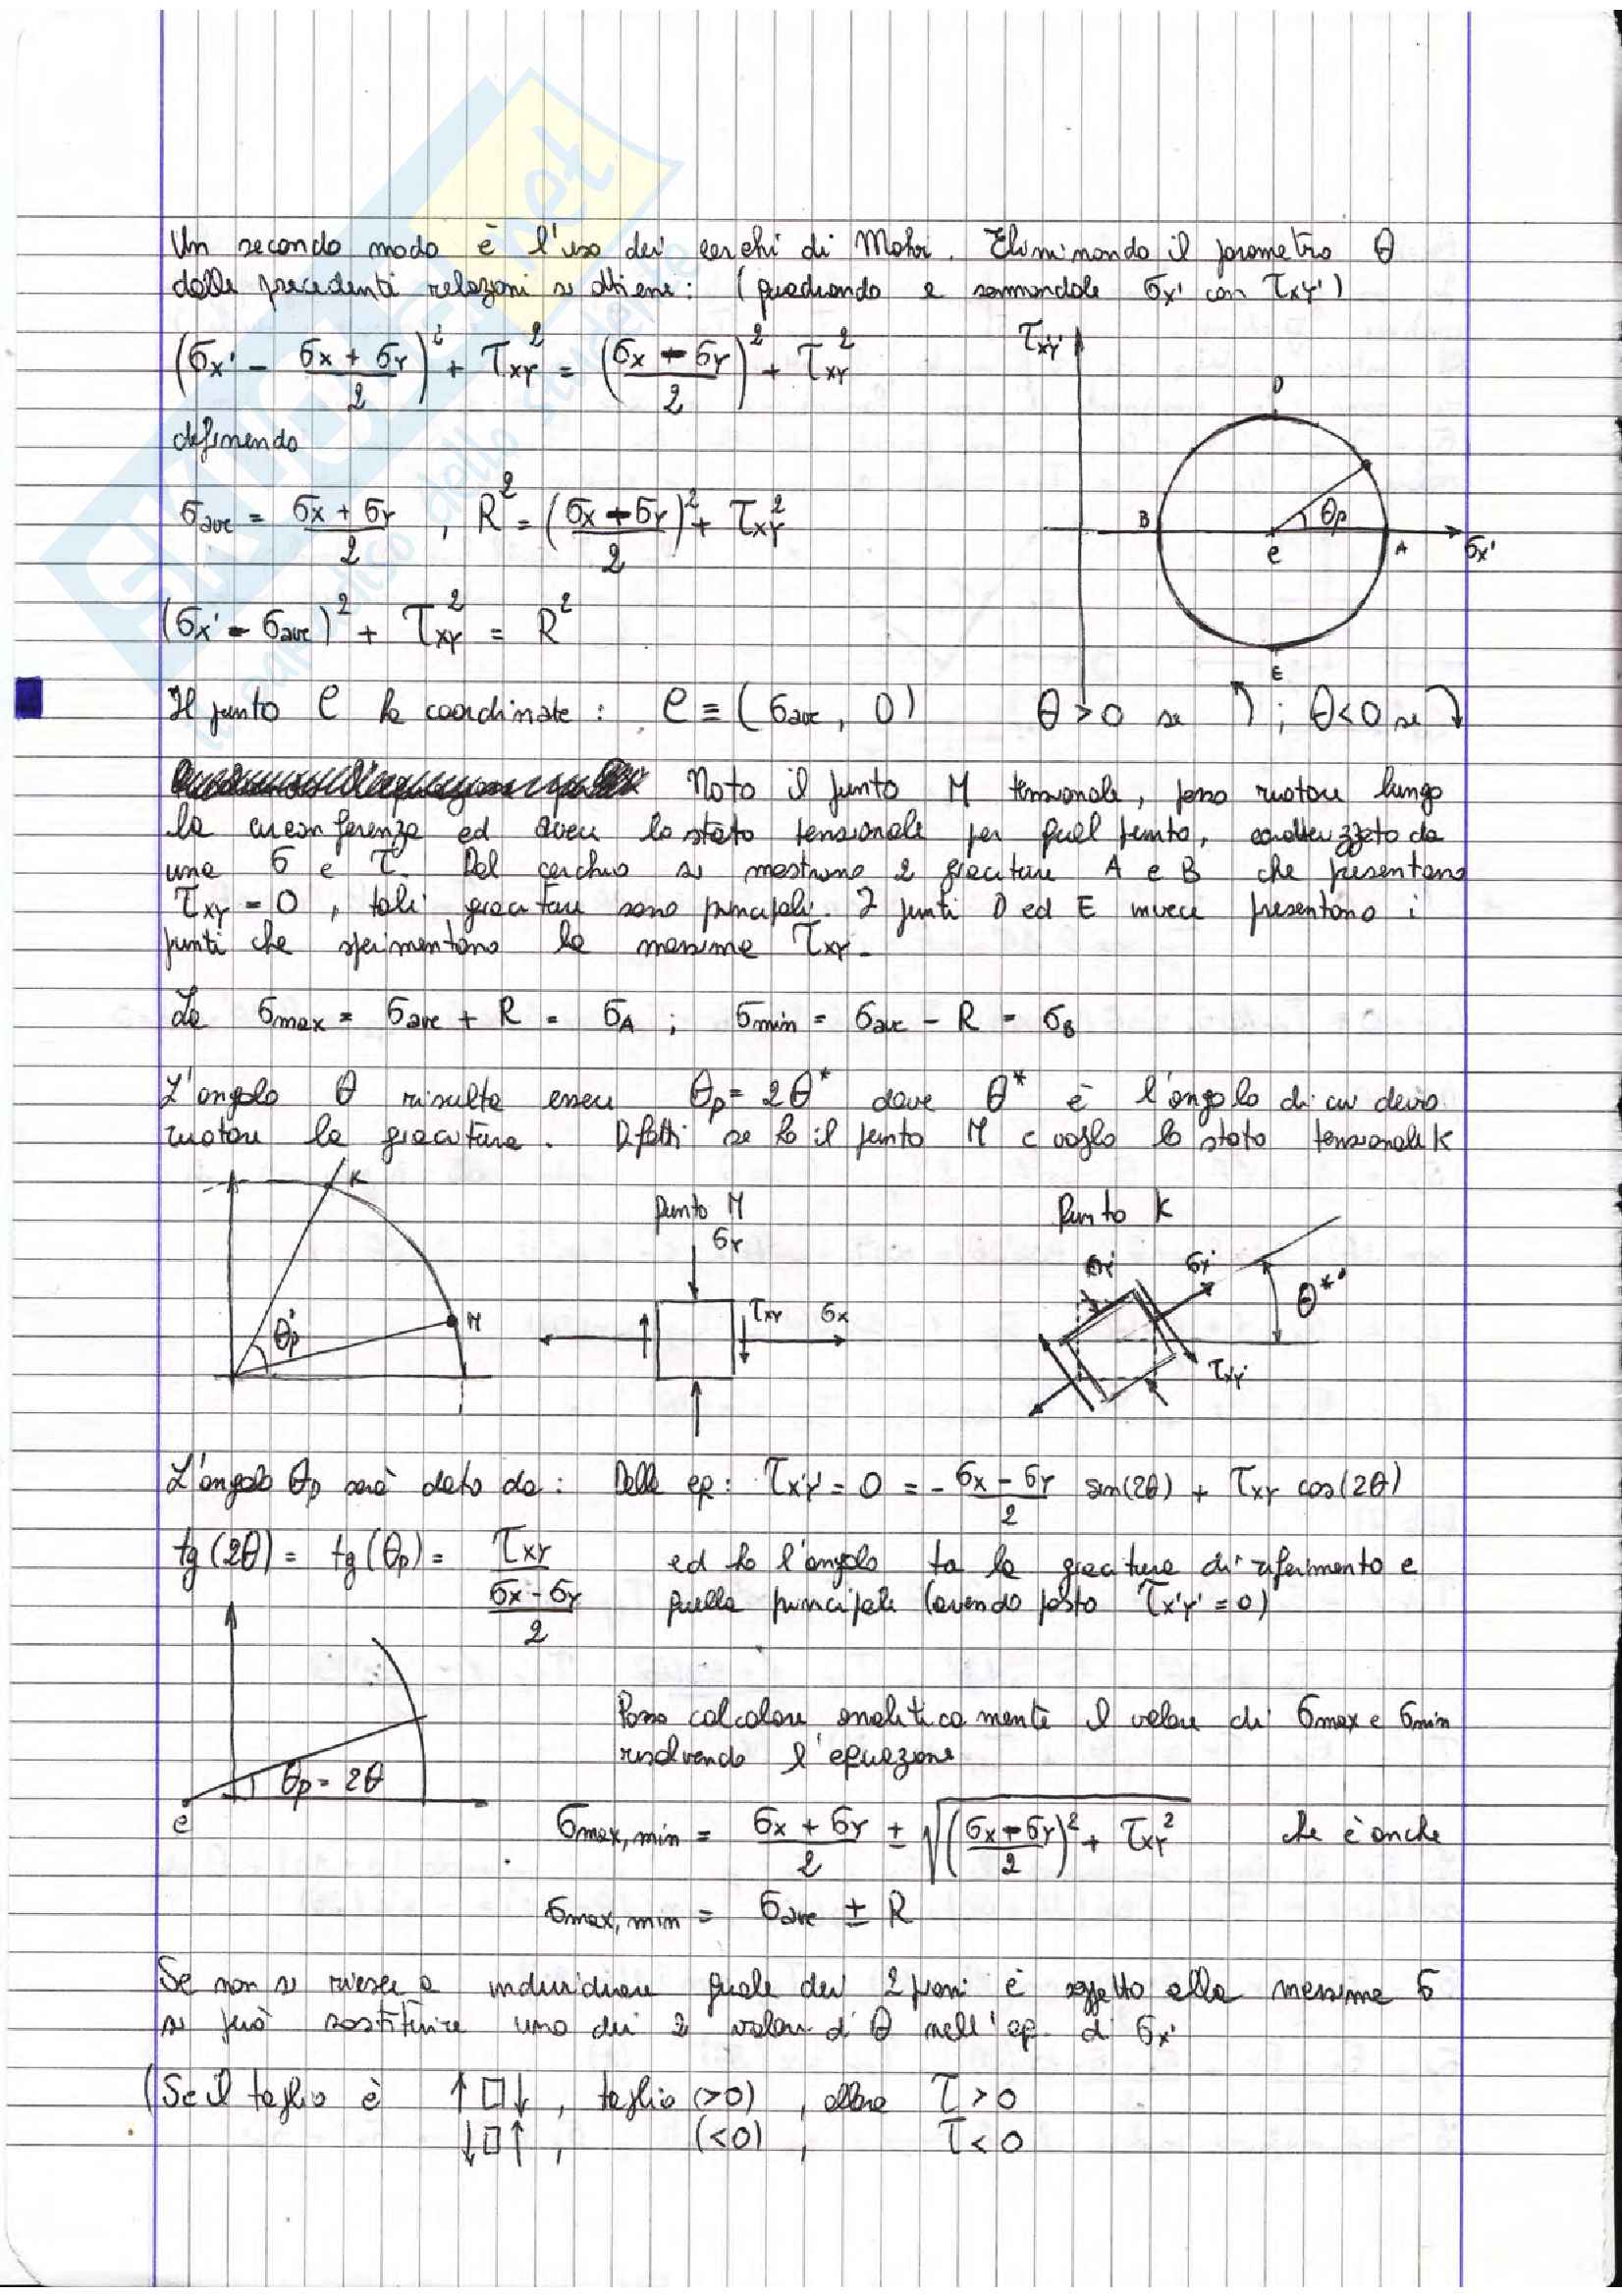 Un secondo modo è l'uso dei cerchi di Mohr. Eliminando il parametro θ
dalle precedenti relazioni si ottiene: (quadrando e sommandole σx' con τx'y')
(σx' - (σx + σy)/2)² + τxy² = ((σx - σy)/2)² + τxy²
τx'y'
D
definendo
σave = (σx + σy)/2 , R² = ((σx - σy)/2)² + τxy²
B C θp A σx'
(σx' - σave)² + τxy² = R²
E
Il punto C ha coordinate: C ≡ (σave, 0) θ>0 se ; θ<0 se
Noto il punto M tensionale, posso ruotare lungo
la circonferenza ed avere lo stato tensionale per quel punto, caratterizzato da
una σ e τ. Dal cerchio si mostrano 2 giaciture A e B che presentano
τxy = 0, tali giaciture sono principali. I punti D ed E invece presentano i
punti che sperimentano la massima τxy.
La σmax = σave + R = σA ; σmin = σave - R = σB
L'angolo θ risulta essere θp = 2θ* dove θ* è l'angolo di cui devo
ruotare la giacitura. Difatti se ho il punto M e voglio lo stato tensionale K
K
Punto M
Punto K
σy
σy' σx' θ*'
θp' M τxy σx
τx'y'
L'angolo θp sarà dato da: Dalle eq: τx'y' = 0 = - (σx - σy)/2 sen(2θ) + τxy cos(2θ)
tg(2θ) = tg(θp) = τxy/((σx - σy)/2) ed ho l'angolo tra la giacitura di riferimento e
quella principale (avendo posto τx'y' = 0)
Posso calcolare analiticamente il valore di σmax e σmin
risolvendo l'equazione
θp = 2θ
C
σmax,min = (σx + σy)/2 ± √(((σx - σy)/2)² + τxy²) che è anche
σmax,min = σave ± R
Se non si riesce a individuare quale dei 2 piani è soggetto alla massima σ
si può sostituire uno dei 2 valori di θ nell'eq. di σx'
(Se il taglio è ↑□↓, taglio (>0), allora τ>0
↓□↑, (<0), τ<0